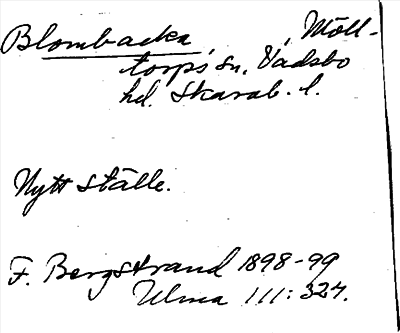 Blombacka, , Möll-
torps sn, Vadsbo
hd. Skarab. l.
Nytt ställe.
F. Bergstrand 1898-99
Ulma 111: 327.